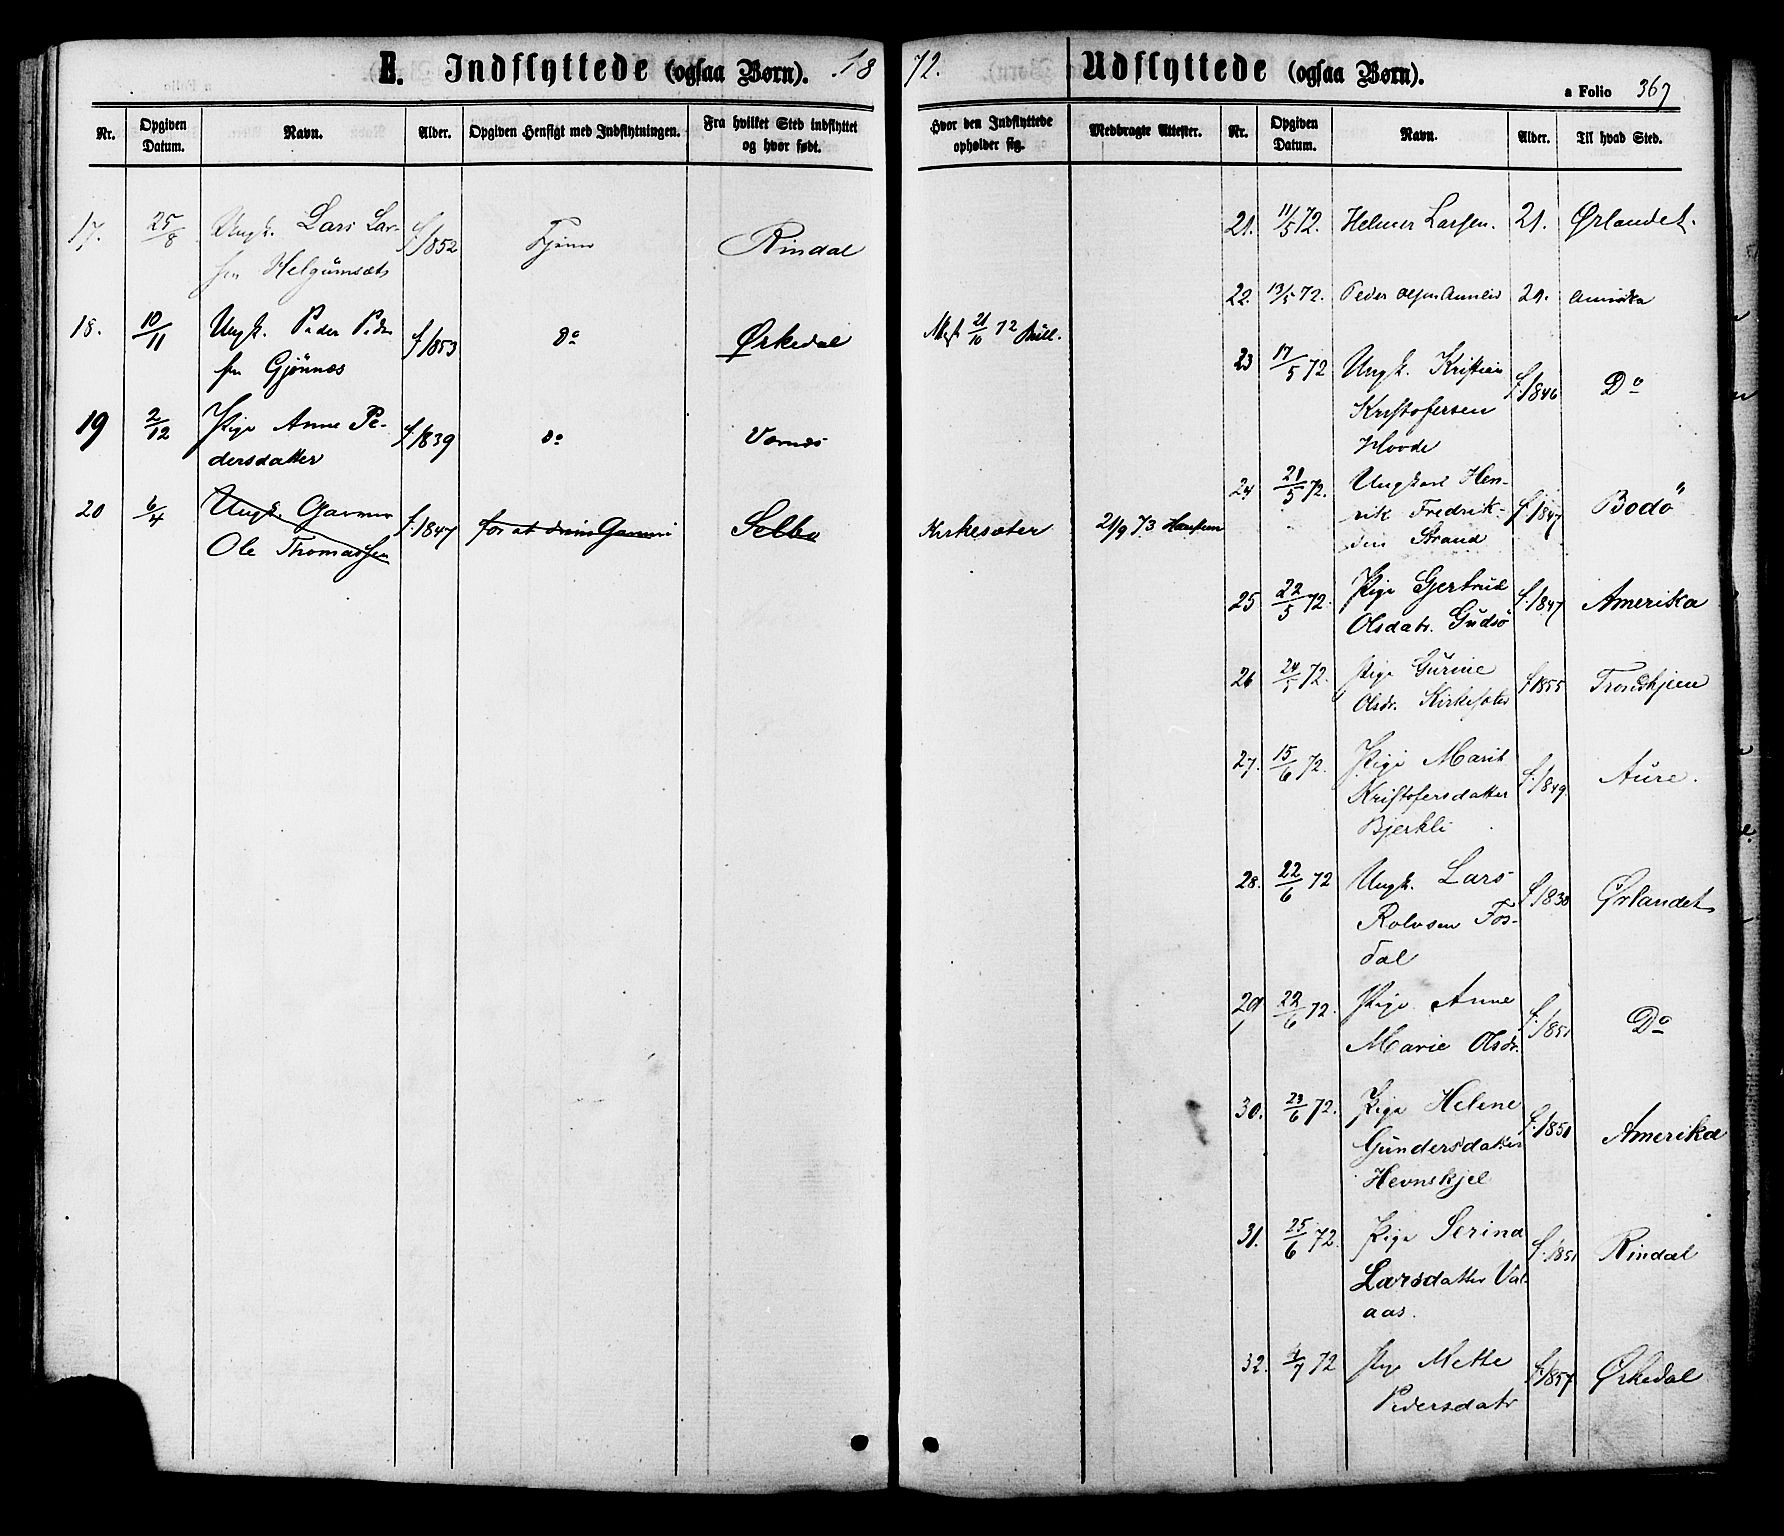 E. Indflyttede (ogsaa Børn). 18
Nr. Opgiven Datum. Navn. Alder. Opgiven Hensigt med Indflytningen. Fra hvilket Sted indflyttet og hvor født.
17. 25/8 Ungk. Lars Lar- f. 1852 Tjene Rindal
sen Helgumsæt
18. 10/11 Ungk. Peder Peder f. 1853 Do Ørkedal
sen Gjønnes
19 2/12 Pige Anne Pe- f. 1839 Do
dersdatter
20 6/4 Ungk. Garver f. 1847 for at drive Garveri Selbo
Ole Thomassen
72. Udflyttede (ogsaa Børn).
a Folio 367
Hvor den Indflyttede opholder sig. Medbragte Attester. Nr. Opgiven Datum. Navn. Alder. Til hvad Sted.
21/10 72
Kirkesæter 21/9 73
21. 11/5 72. Helmer Larsen. 21. Ørlandet.
22. 13/5 72. Peder Olsen 29. Amerika
23 17/5 72 Ungk. Kristian f. 1846 Do
Kristofersen
Hovde
24 21/5 72. Ungkarl Hen- f. 1847 Bodø
rik Fredrik-
sen Strand
25 22/5 72. Pige Gjertrud f. 1847 Amerika
Olsdatr. Gudsø
26 24/5 72. Pige Gurine f. 1855 Trondhjem
Olsdr. Kirkesæter
27. 15/6 72. Pige Marit f. 1849. Aure.
Kristofersdatter
Bjerkli
28. 22/6 72 Ungk. Lars f. 1830 Ørlandet
Rolvsen Fos-
dal
29 22/6 72. Pige Anne f. 1851 Do
Marie Olsdr.
30. 23/6 72. Pige Helene f. 1851 Amerika
Gundersdatter
Hevnskjel
31. 25/6 72. Pige Serina f. 1851 Rindal
Larsdatter Val-
aas.
32. 4/7 72 Pige Mette f. 1857 Ørkedal
Pedersdatr